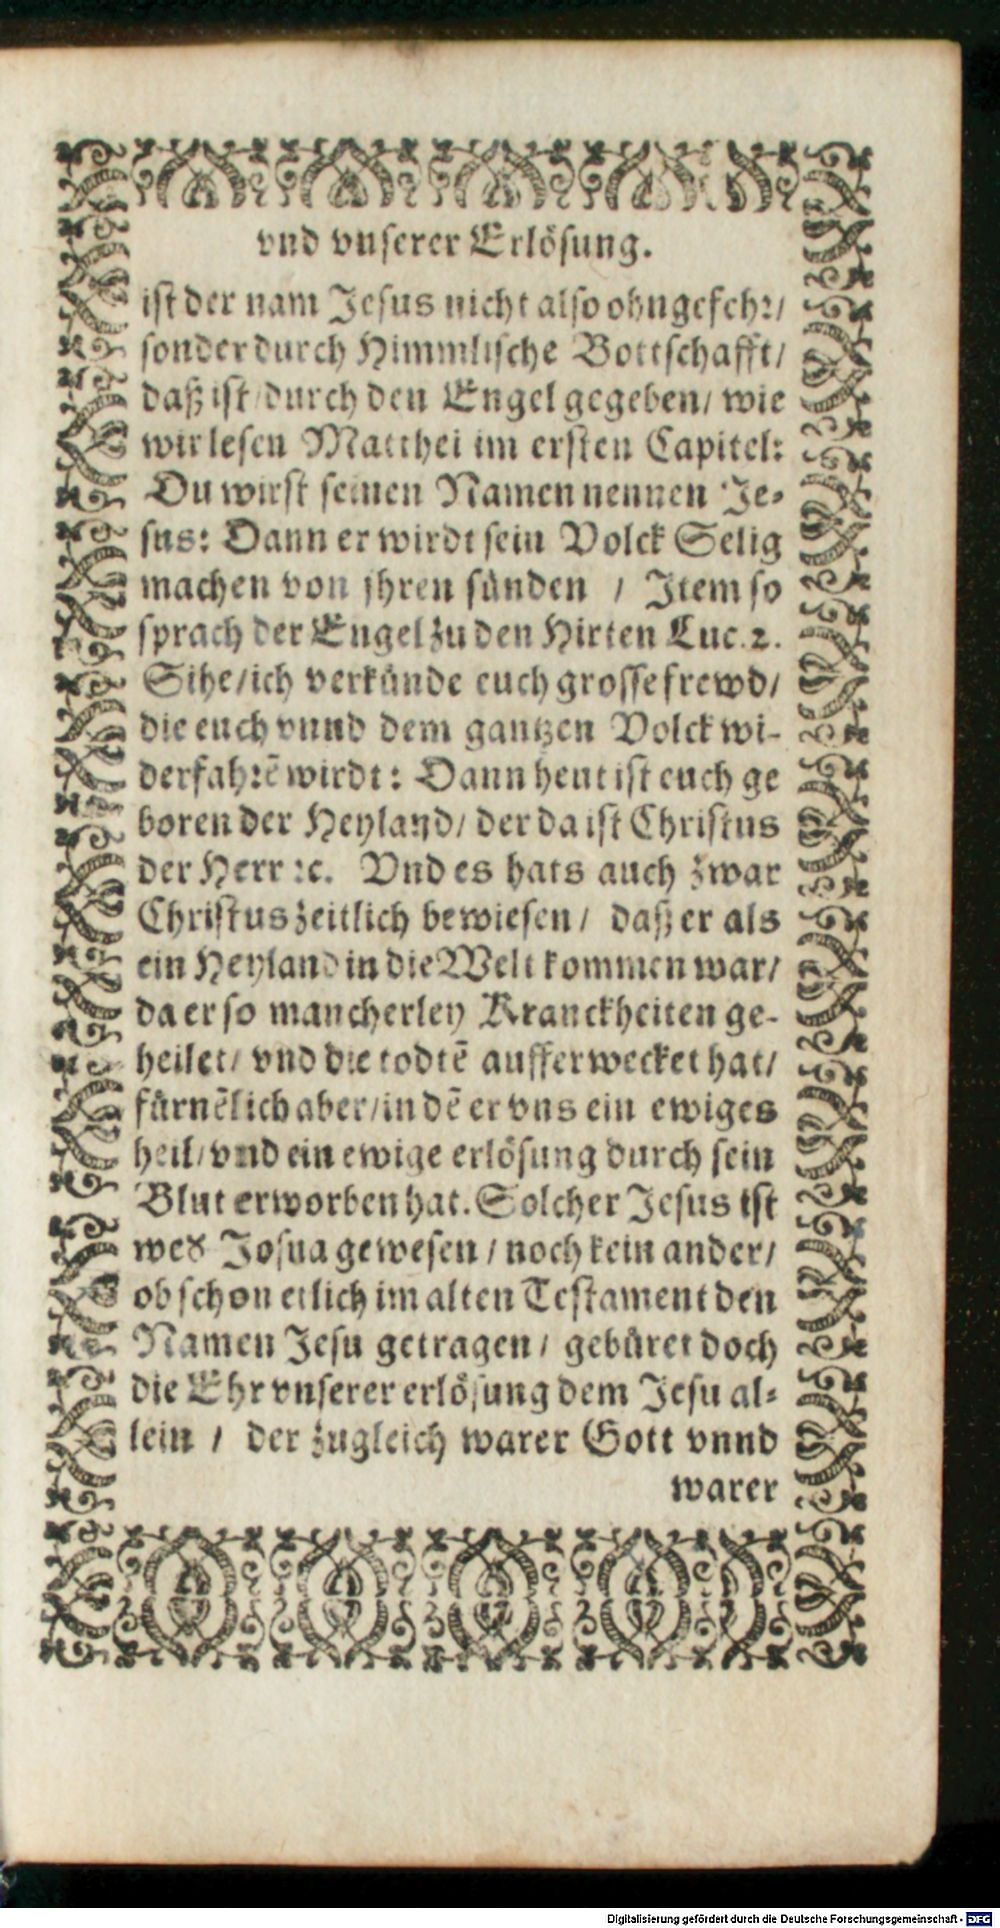 vnd vnserer Erlösung.
ist der nam Jesus nicht also ohngefehr/
sonder durch Himmlische Bottschafft/
daß ist/durch den Engel gegeben/ wie
wir lesen Matthei im ersten Capitel:
Du wirst seinen Namen nennen Je-
sus: Dann er wirdt sein Volck Selig
machen von jhren sünden / Item so
sprach der Engel zu den Hirten Luc. 2.
Sihe/ich verkünde euch grosse frewd/
die euch vnnd dem gantzen Volck wi-
derfahrē wirdt: Dann heut ist euch ge
boren der Heyland/ der da ist Christus
der Herr ꝛc. Vnd es hats auch zwar
Christus zeitlich bewiesen/ daß er als
ein Heyland in die Welt kommen war/
da er so mancherley Kranckheiten ge-
heilet/ vnd die todtē aufferwecket hat/
fürnēlich aber/in dē er vns ein ewiges
heil/vnd ein ewige erlösung durch sein
Blut erworben hat. Solcher Jesus ist
weꝺ Josua gewesen / noch kein ander/
ob schon etlich im alten Testament den
Namen Jesu getragen / gebüret doch
die Ehr vnserer erlösung dem Jesu al-
lein / der zugleich warer Gott vnnd
warer
Digitalisierung gefördert durch die Deutsche Forschungsgemeinschaft - DFG